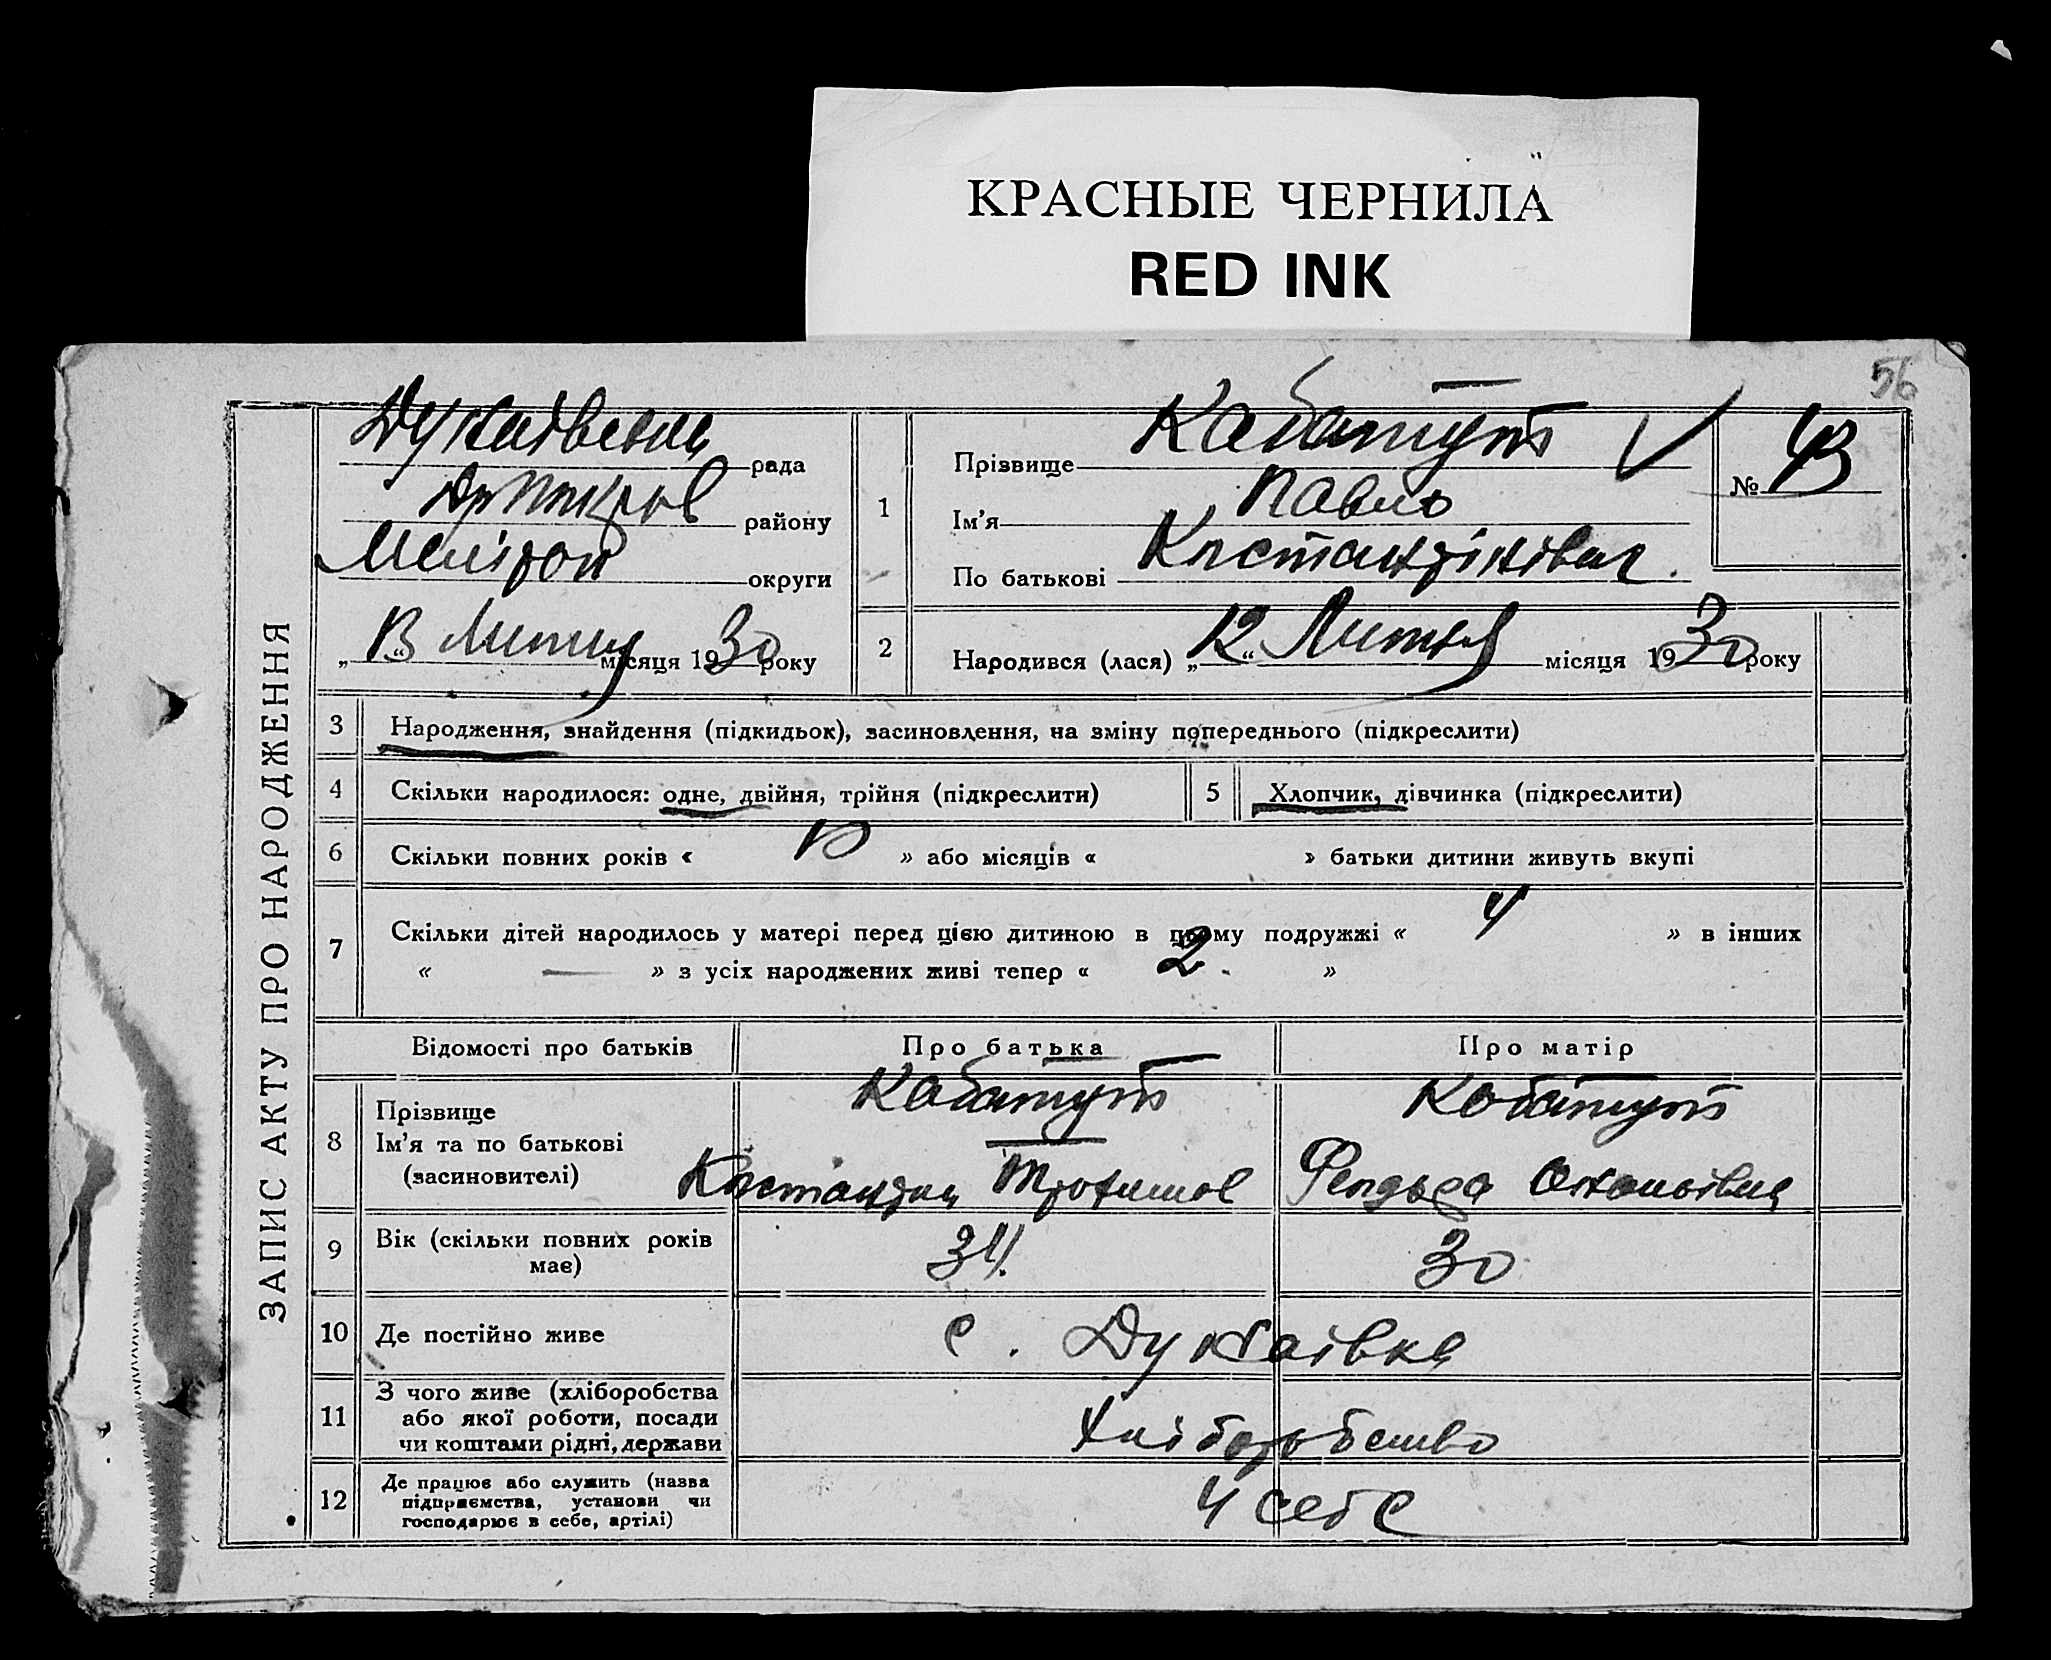 КРАСНЫЕ ЧЕРНИЛА
RED INK
56
ЗАПИС АКТУ ПРО НАРОДЖЕННЯ
рада
району
округи
„13“ Липня місяця 1930 року
1
Прізвище Кабатут
Ім'я Павло
По батькові Костандінівич.
№ 43
2
Народився (лася) „12“ Липня місяця 1930 року
3 Народження, знайдення (підкидьок), засиновлення, на зміну попереднього (підкреслити)
4 Скільки народилося: одне, двійня, трійня (підкреслити)
5 Хлопчик, дівчинка (підкреслити)
6 Скільки повних років « » або місяців « » батьки дитини живуть вкупі
7 Скільки дітей народилось у матері перед цією дитиною в цьому подружжі « 4 » в інших
« — » з усіх народжених живі тепер « 2. »
Відомості про батьків
Про батька
Про матір
8 Прізвище
Ім'я та по батькові
(засиновителі)
Кабатут
Костандин Трохимов
Кабатут
9 Вік (скільки повних років
має)
34.
30
10 Де постійно живе
с. Дунаівка
11 З чого живе (хліборобства
або якої роботи, посади
чи коштами рідні, держави
Хліборобство
12 Де працює або служить (назва
підприємства, установи чи
господарює в себе, артілі)
У себе